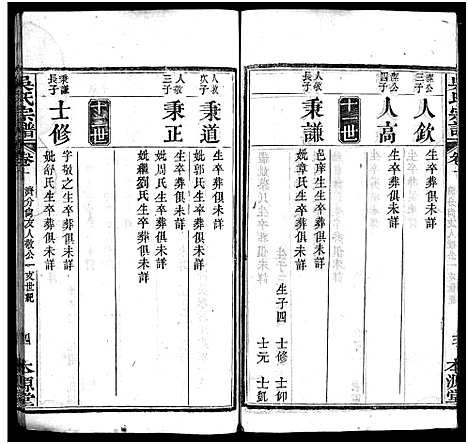 吳氏宗譜
卷十
本源堂
人欽
生卒葬俱未詳
四子
人高
生卒葬俱未詳
十二世
人敬
長子
秉謙
邑庠生卒葬俱未詳
妣章氏生卒葬俱未詳
生子四
士修
士仰
士元
士凱
人敬
次子
秉道
生卒葬俱未詳
妣郭氏生卒葬俱未詳
人敬
三子
秉正
生卒葬俱未詳
妣周氏生卒葬俱未詳
妣繼劉氏生卒葬俱未詳
十三世
秉謙
長子
士修
字敬之生卒葬俱未詳
妣舒氏生卒葬俱未詳
吳氏宗譜
卷十
人敬公一支世紀
四
本源堂